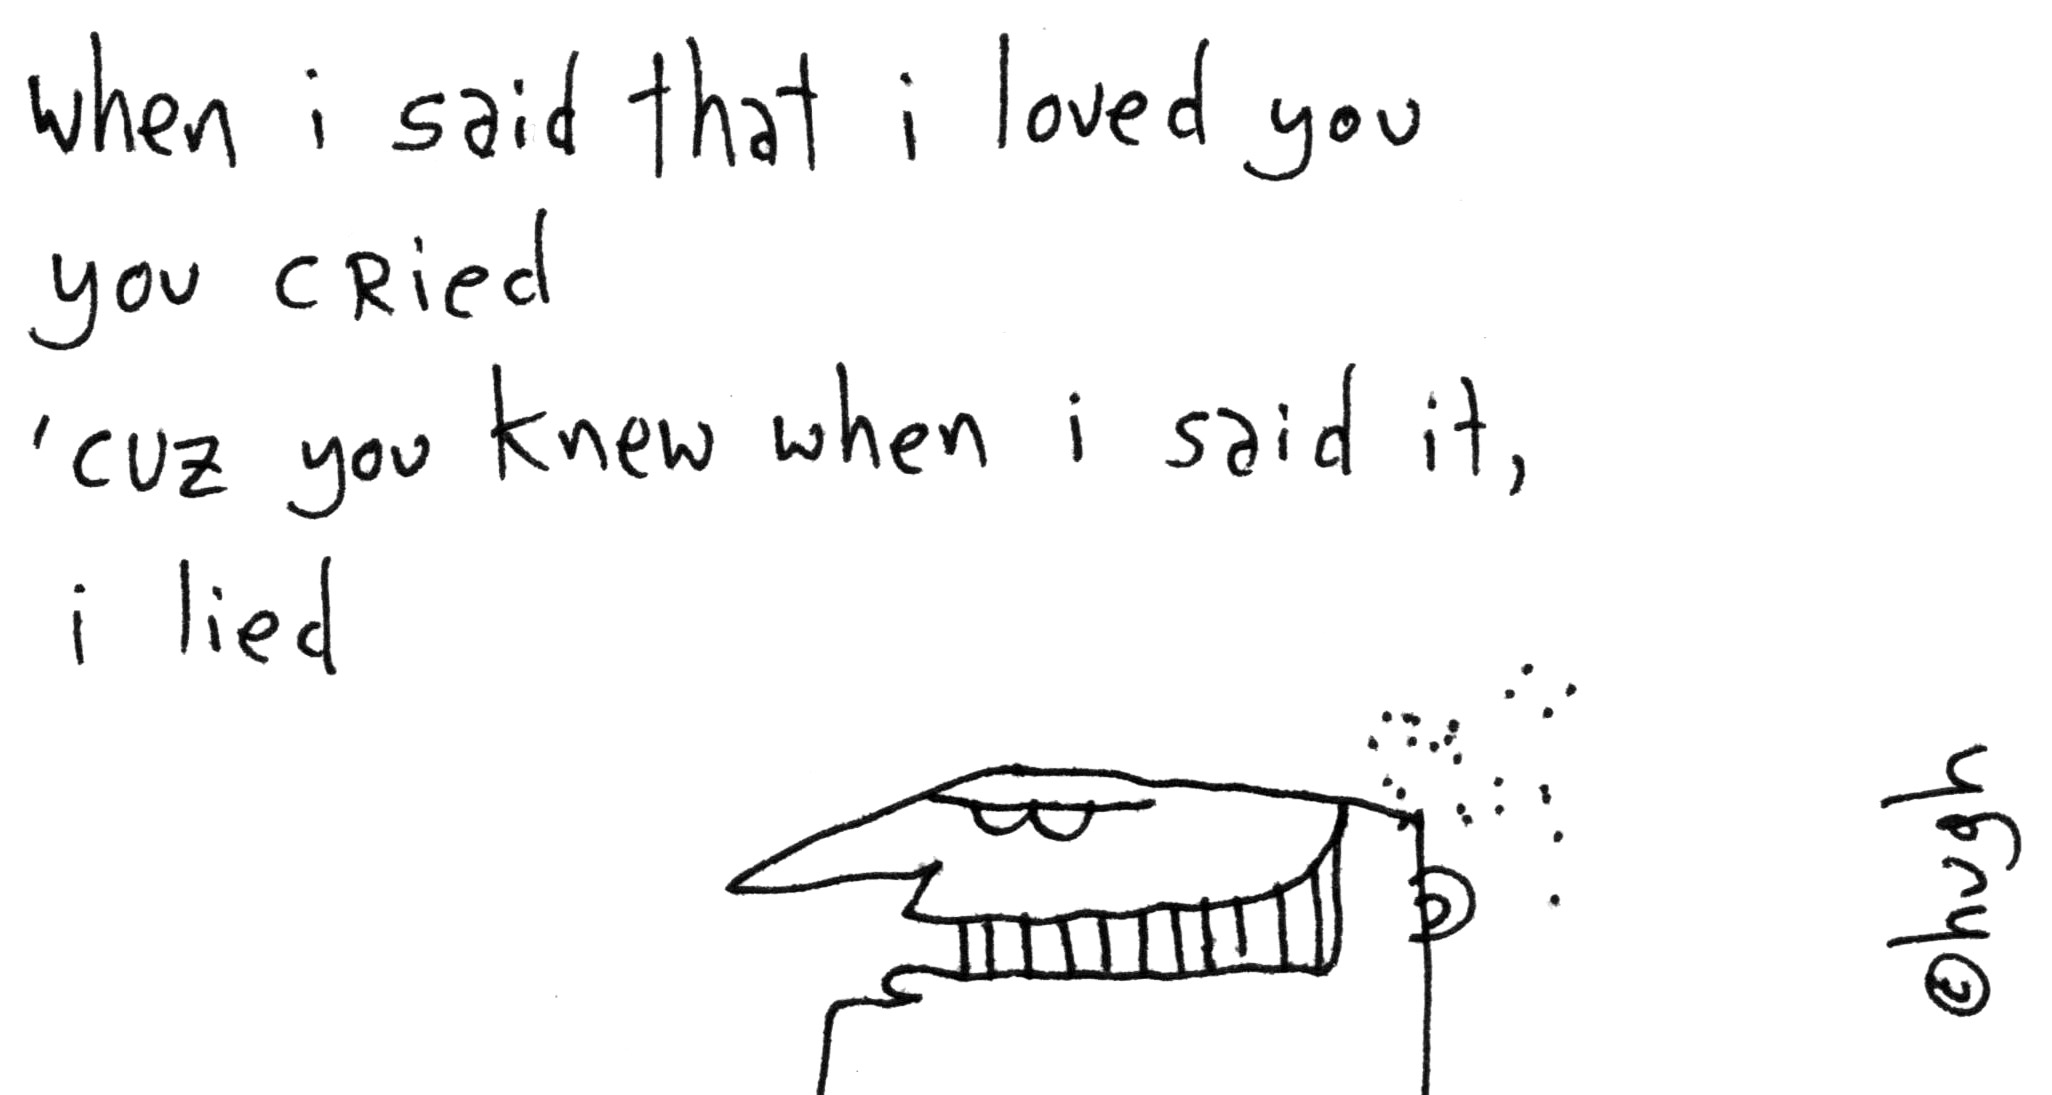 when i said that i loved you
you cRied
'cuz you knew when i said it,
i lied
©hugh